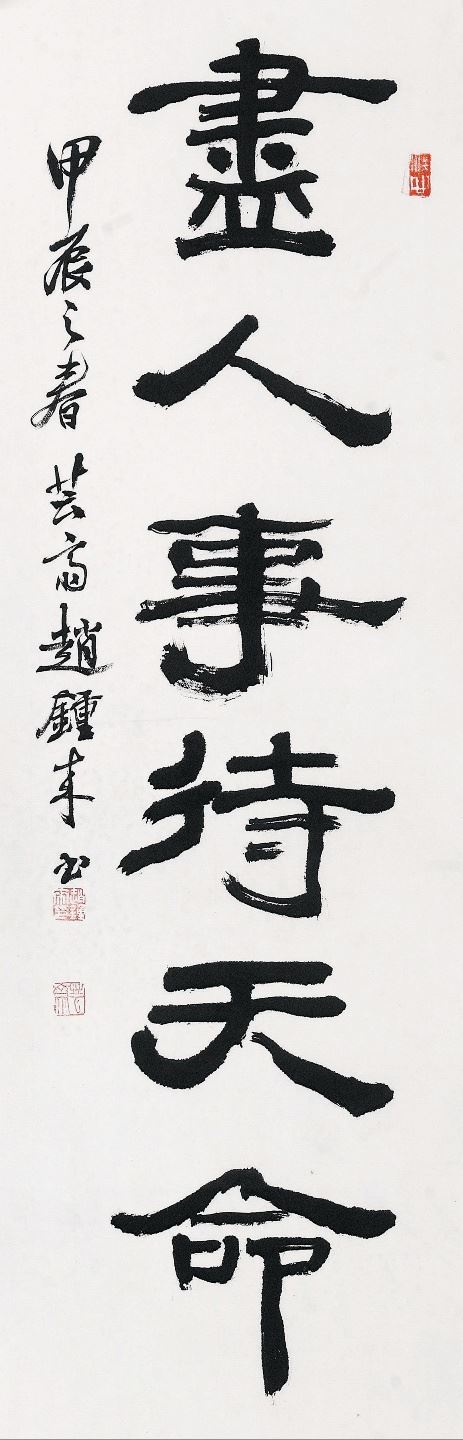 盡人事待天命
甲辰之春 芸齋 趙鍾來 书